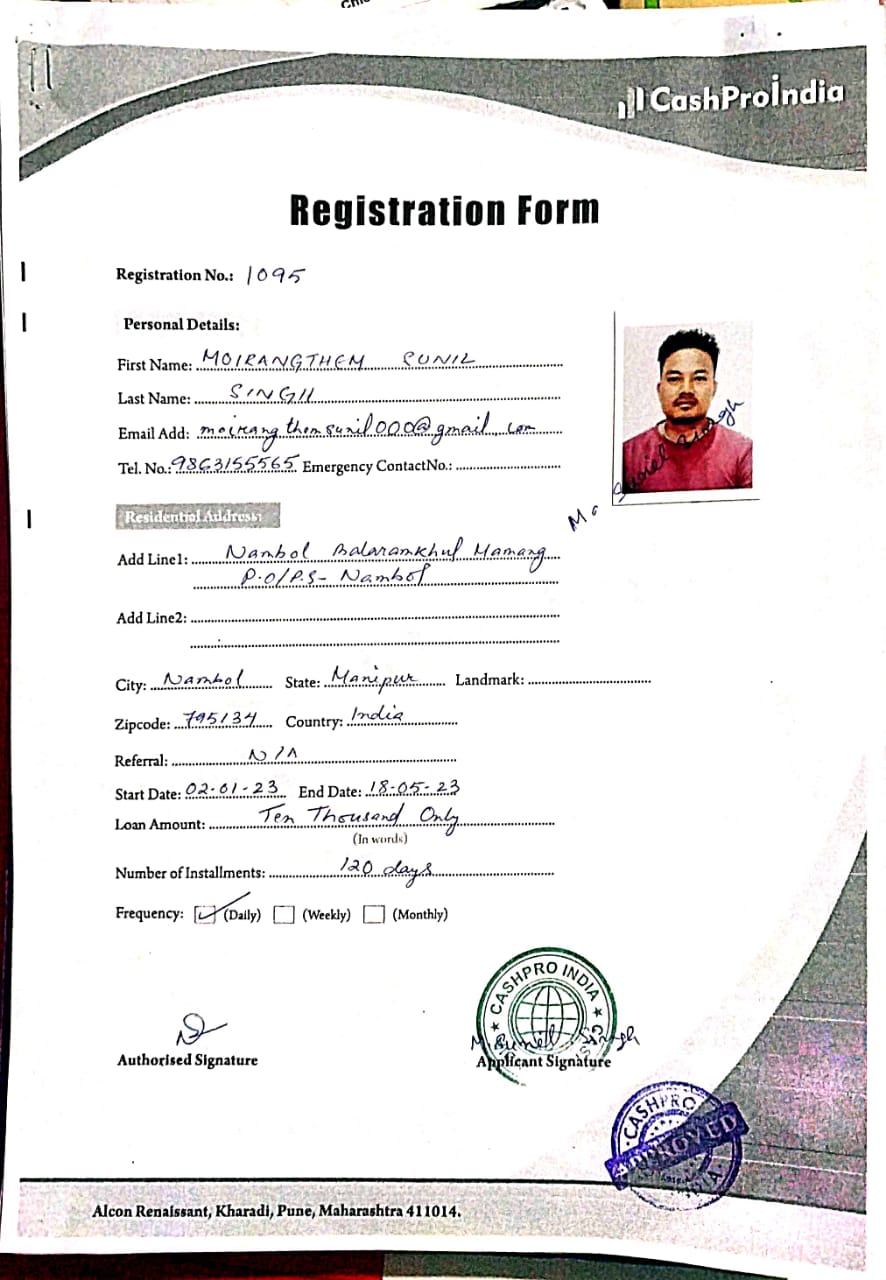 CashProIndia
Registration Form
Registration No.: 1095
Personal Details:
First Name: MOIRANGTHEM SUNIL
Last Name: SINGH
Email Add: moirangthemsunil000@gmail.com
Tel. No.: 9863155565 Emergency ContactNo.:
Residential Address:
Add Line1: Nambol Balaramkhul Mamang
P.O/P.S- Nambol
Add Line2:
City: Nambol State: Manipur Landmark:
Zipcode: 795134 Country: India
Referral: N/A
Start Date: 02-01-23 End Date: 18-05-23
Loan Amount: Ten Thousand Only
(In words)
Number of Installments: 120 days
Frequency: (Daily) (Weekly) (Monthly)
CASHPRO INDIA
Authorised Signature
Applicant Signature
CASHPRO
APPROVED
Alcon Renaissant, Kharadi, Pune, Maharashtra 411014.